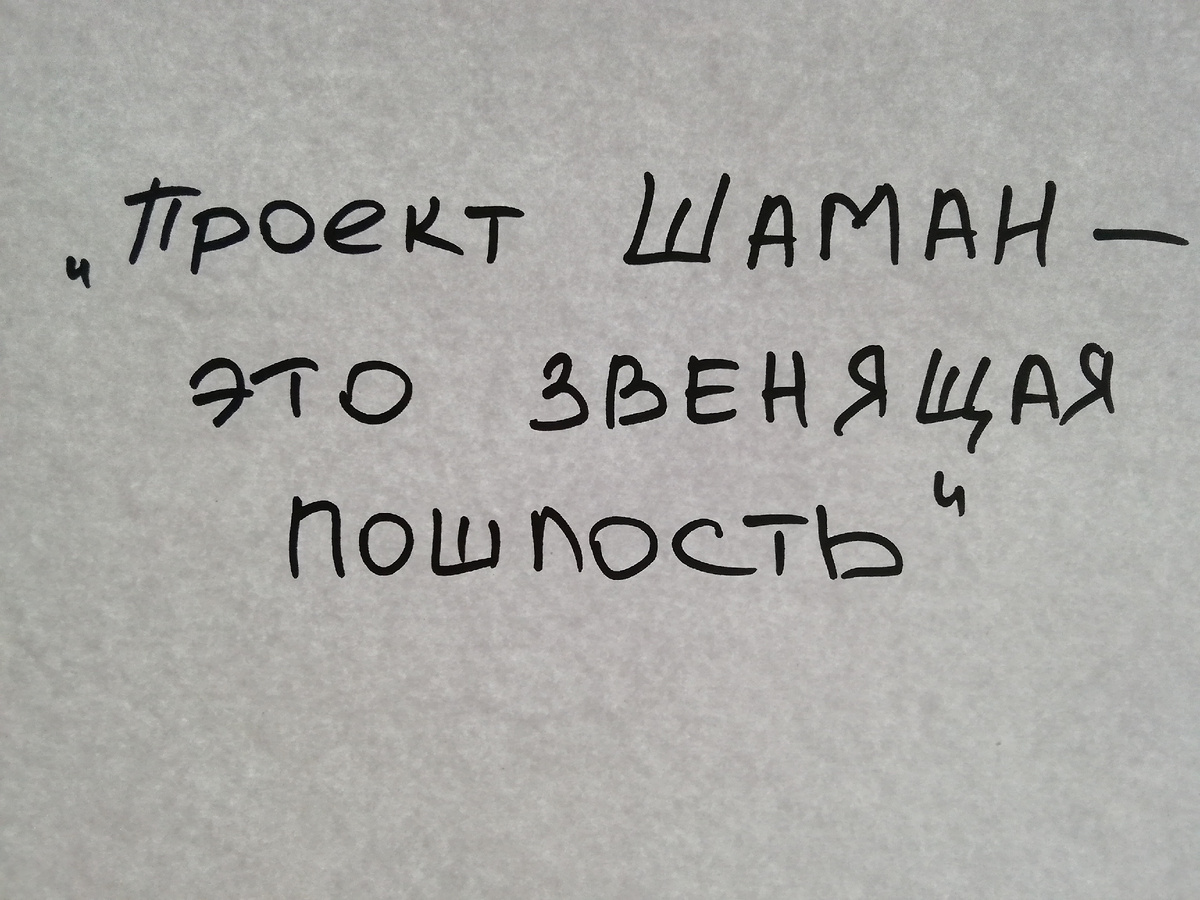 „Проект ШАМАН —
ЭТО ЗВЕНЯЩАЯ
ПОШПОСТЬ“